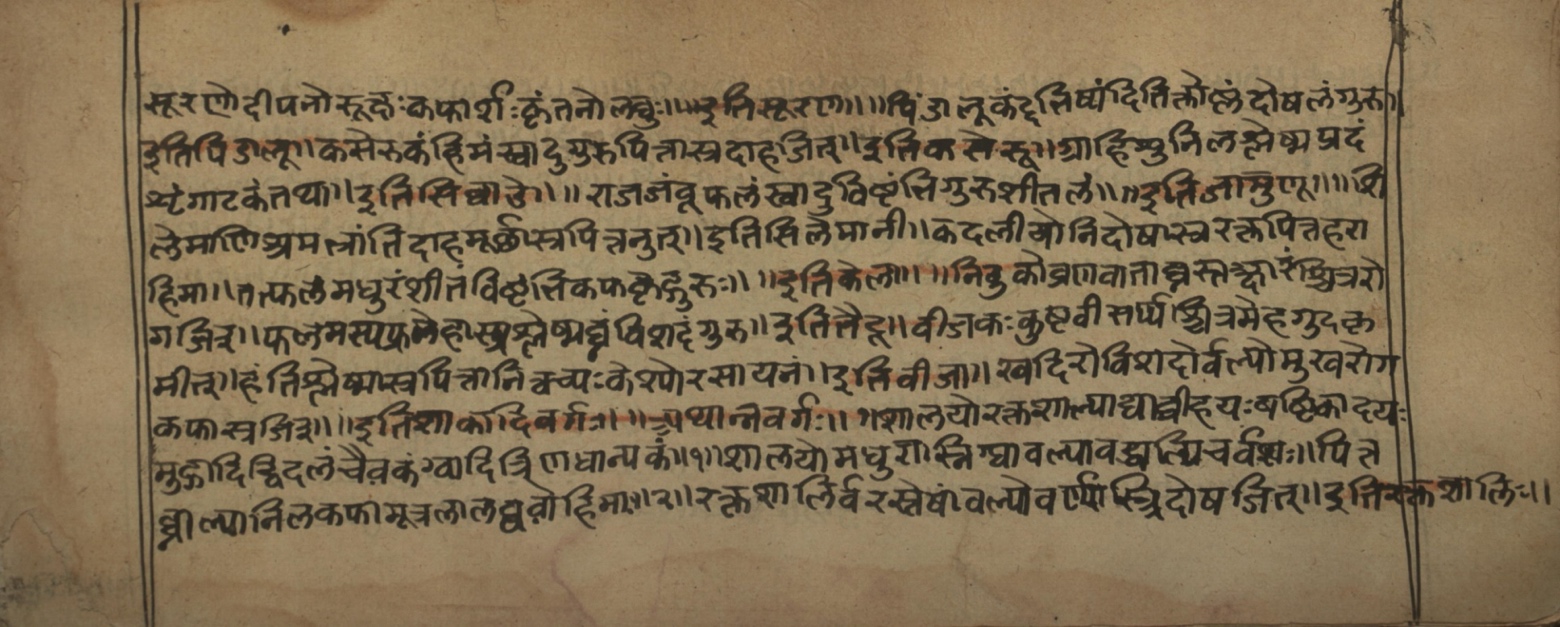 सूरणोदीपनोरूक्षःकफार्शःकृंतनोलघुः॥॥इतिसूरण॥॥पिंडालूकंद्लिष्यंदितिलौष्णंदोषलंगुरु॥
इतिपिडालू॥कसेरुकंहिमंस्वादुगुरुपित्तास्रदाहजित्॥इतिकसेरू॥ग्राहिशुनिलश्लेष्मप्रदं
शृंगाटकंतथा॥इतिसिघाडे॥॥राजजंबूफलंस्वादुविष्टंत्तिगुरुशीतलं॥॥इतिजामुण॥॥शि
लेमाणिश्रमत्त्रांतिदाहमूर्छास्त्रपित्तनुत्॥इतिसिलेमानी॥कदलीयोनिदोषास्त्ररक्तपित्तहरा
हिमा॥तत्फलंमधुरंशीतंविष्टंत्तिकफकृद्गुरुः॥॥इतिकेला॥॥तिंदुकोव्रणवाताघ्नस्तत्क्षारंश्चित्ररो
गजित्॥फलमस्पप्रमेहास्रश्लेष्मघ्नंविशदंगुरु॥इतितैंदू॥वीजकःकुष्टवीसर्प्पश्चित्रमेहगुदकृ
मीत्॥हंतिश्लेष्मास्त्रपित्तानित्वच्यःकेश्योरसायनं॥इतिवीजा॥खदिरोविशदोर्वल्योमुखरोग
कफास्त्रजित्॥॥इतिशाकादिवर्गः॥॥अथान्नवर्गः॥॥शालयोरक्तशाल्याद्याव्रीहयःषष्टिकादयः
मुद्गादिद्विदलंचैवकंग्वादित्रिणधान्यकं॥१॥शालयोमधुरास्निग्धावल्यावद्धाल्पिचर्वशः॥पित्त
घ्नोल्पानिलकफामूत्रलालघ्वोहिमा॥२॥रक्तशालिर्वरस्तेषांवल्योवर्ण्यस्त्रिदोषजित्॥इतिरक्तशालिः॥